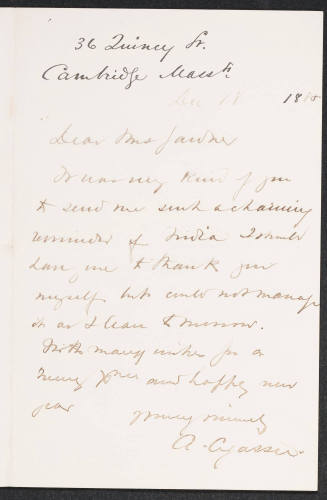 36 Quincy St.
Cambridge Mass.
Dec 18 1885
Dear Mrs Gardner
It was very kind of you
to send me such a charming
reminder of India I should
have me to thank you
myself but could not manage
it as I leave tomorrow.
With many wishes for a
Merry Xmas and happy new
year
yours sincerely
A. Agassiz.